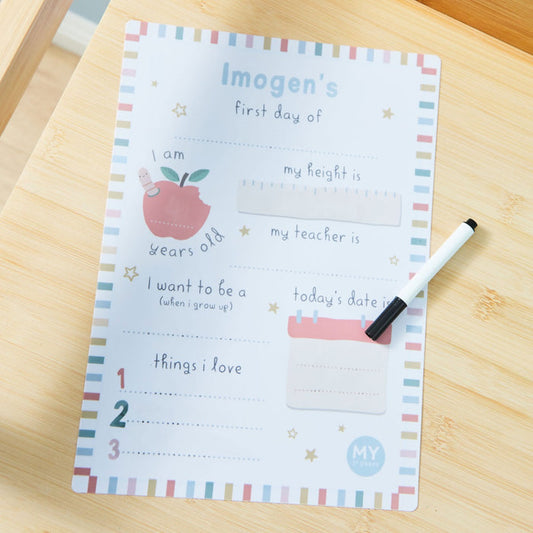 Imogen's
first day of
I am
my height is
years old
my teacher is
I want to be a
(when i grow up)
today's date is
things i love
1
2
3
MY
1st YEARS